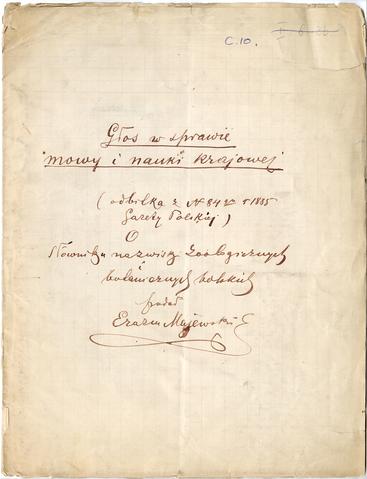 C.10.
Głos w sprawie
mowy i nauki krajowej
(odbitka z № 84 r 1885
Gazety Polskiej)
O
Słowniku nazwisk Zoologicznych
botanicznych polskich
podał
Erazm Majewski